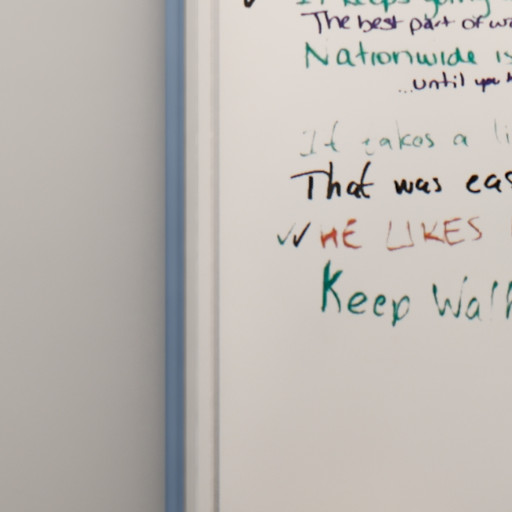 The best part of
Nationwide is
...until you
It takes a
That was
HE LIKES
Keep